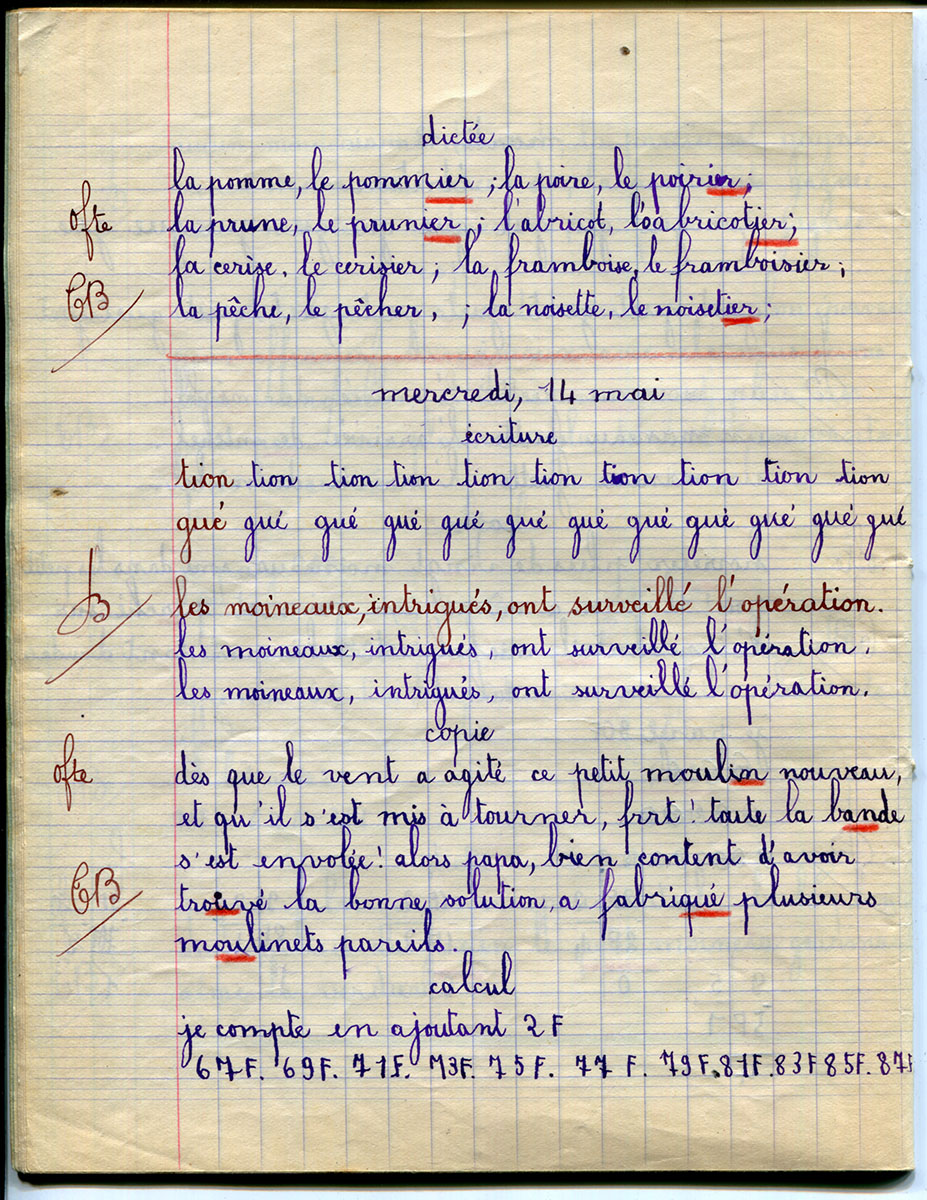 dictée
la pomme, le pommier ; la poire, le poirier ;
ofte la prune, le prunier ; l'abricot, l'oabricotier ;
la cerise. le cerisier ; la framboise, le framboisier ;
TB la pêche, le pêcher, ; la noisette, le noisetier ;
mercredi, 14 mai
écriture
tion tion tion tion tion tion tion tion tion tion
gué gué gué gué gué gué gué gué gué gué gué gué
B les moineaux, intrigués, ont surveillé l'opération.
les moineaux, intrigués, ont surveillé l'opération.
les moineaux, intrigués, ont surveillé l'opération.
copie
ofte dès que le vent a agité ce petit moulin nouveau,
et qu'il s'est mis à tourner, frrt ! toute la bande
s'est envolée ! alors papa, bien content d'avoir
TB trouvé la bonne solution, a fabriqué plusieurs
moulinets pareils.
calcul
je compte en ajoutant 2 F
67F. 69F. 71F. 73F. 75F. 77 F. 79F. 81F. 83F 85F. 87F